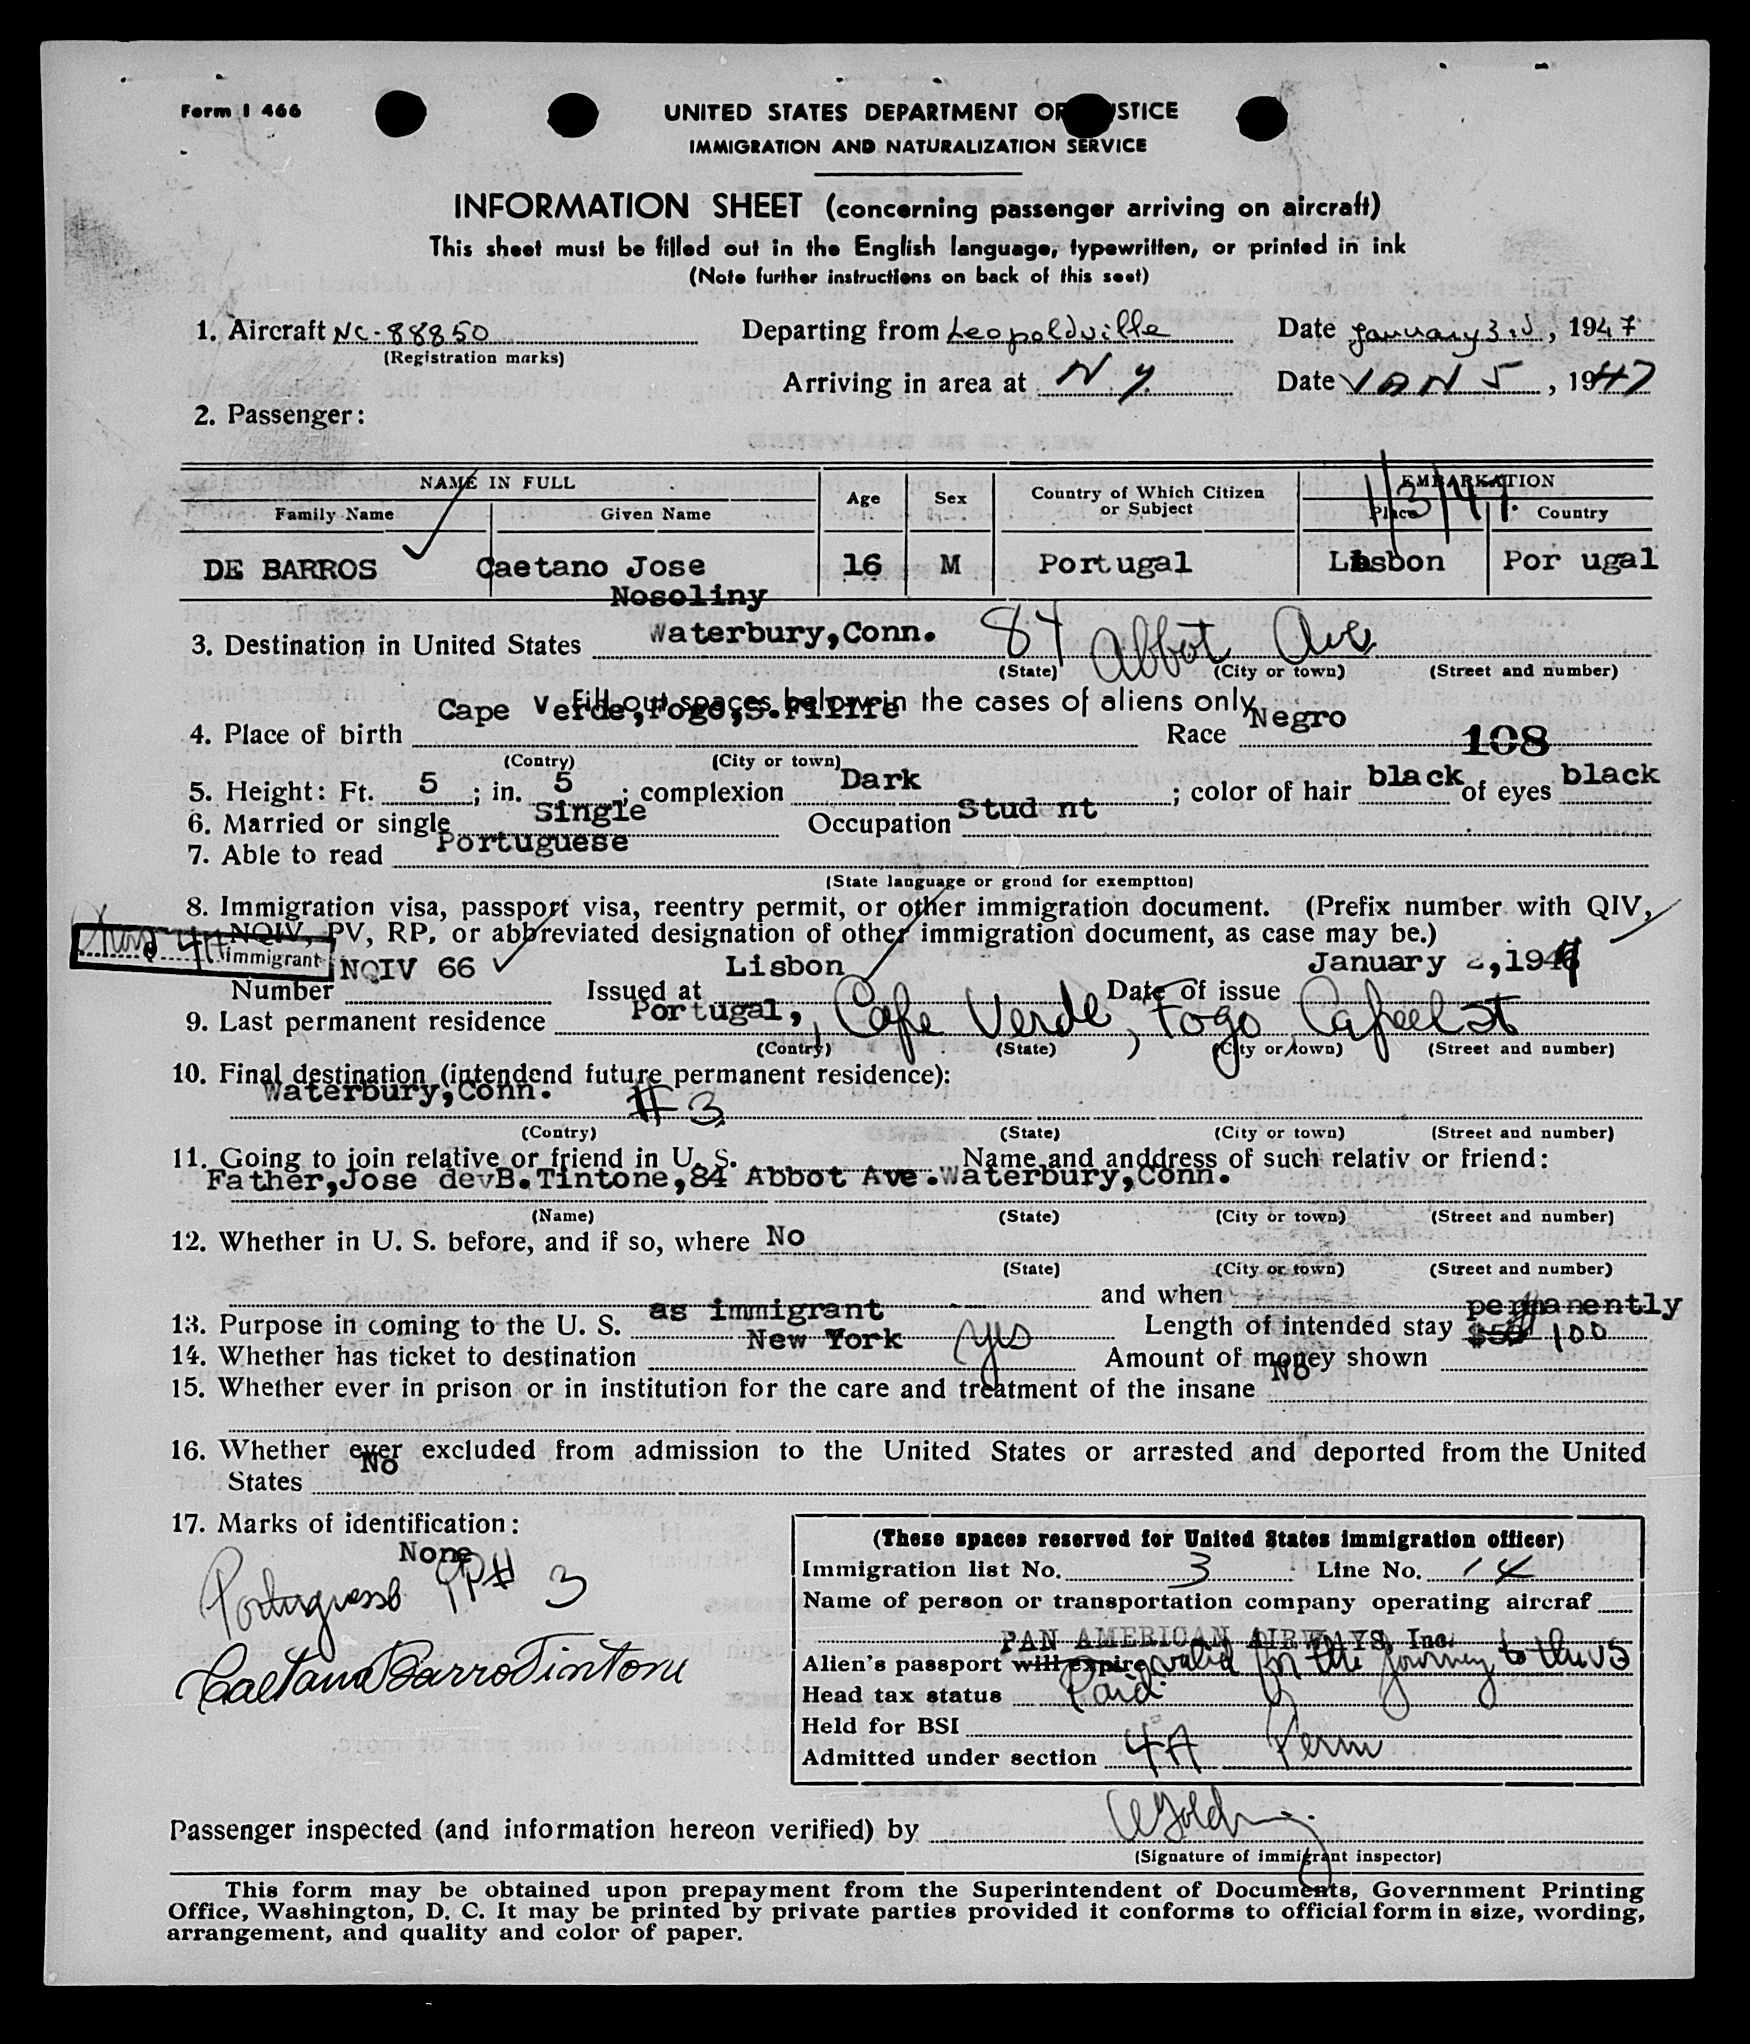 Form I 466
UNITED STATES DEPARTMENT OF JUSTICE
IMMIGRATION AND NATURALIZATION SERVICE
INFORMATION SHEET (concerning passenger arriving on aircraft)
This sheet must be filled out in the English language, typewritten, or printed in ink
(Note further instructions on back of this seet)
1. Aircraft NC-88850 Departing from Leopoldville Date January 3rd, 1947
(Registration marks)
Arriving in area at NY Date JAN 5, 1947
2. Passenger:
NAME IN FULL Age Sex Country of Which Citizen or Subject EMBARKATION
Family Name Given Name Place Country
1/3/47.
DE BARROS Caetano Jose 16 M Portugal Lisbon Por ugal
Nosoliny
3. Destination in United States Waterbury,Conn. 84 Abbot Ave
(State) (City or town) (Street and number)
Fill out spaces below in the cases of aliens only
4. Place of birth Cape Verde,Fogo,S. Race Negro
108
(Contry) (City or town)
5. Height: Ft. 5; in. 5; complexion Dark; color of hair black of eyes black
6. Married or single Single Occupation Stud nt
7. Able to read Portuguese
(State language or grond for exemption)
8. Immigration visa, passport visa, reentry permit, or other immigration document. (Prefix number with QIV,
NQIV, PV, RP, or abbreviated designation of other immigration document, as case may be.)
immigrant
Number NQIV 66 Issued at Lisbon Date of issue January 2,1947
9. Last permanent residence Portugal, Cape Verde, Fogo
(Contry) (State) (City or town) (Street and number)
10. Final destination (intendend future permanent residence):
Waterbury,Conn. #3
(Contry) (State) (City or town) (Street and number)
11. Going to join relative or friend in U. S. Name and anddress of such relativ or friend:
Father,Jose devB.Tintone,84 Abbot Ave.Waterbury,Conn.
(Name) (State) (City or town) (Street and number)
12. Whether in U. S. before, and if so, where No
(State) (City or town) (Street and number)
and when
13. Purpose in coming to the U. S. as immigrant Length of intended stay permanently
14. Whether has ticket to destination New York yes Amount of money shown $50 100
15. Whether ever in prison or in institution for the care and treatment of the insane No
16. Whether ever excluded from admission to the United States or arrested and deported from the United
States No
17. Marks of identification:
None
Portuguese PP# 3
Caetano Barro Tintone
(These spaces reserved for United States immigration officer)
Immigration list No. 3 Line No. 14
Name of person or transportation company operating aircraf
PAN AMERICAN AIRWAYS, Inc.
Alien's passport will expire valid for the journey to the US
Head tax status Paid
Held for BSI
Admitted under section 4A Perm
Passenger inspected (and information hereon verified) by
(Signature of immigrant inspector)
This form may be obtained upon prepayment from the Superintendent of Documents, Government Printing
Office, Washington, D. C. It may be printed by private parties provided it conforms to official form in size, wording,
arrangement, and quality and color of paper.